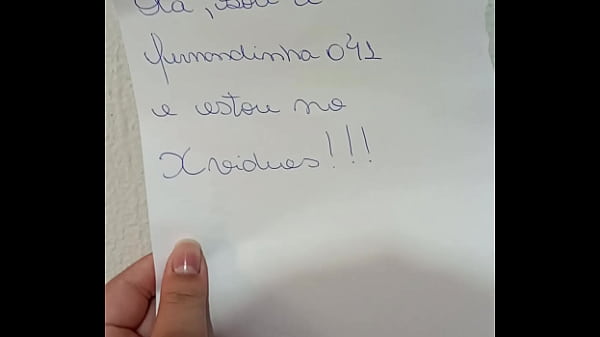 Olá, sou a
fernandinha 041
e estou no
Xvideos!!!